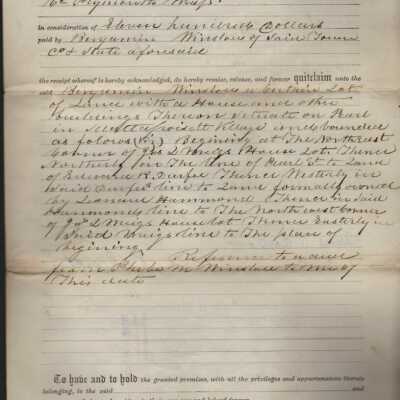 Co Plymouth & Mass
In consideration of Eleven hundred Dollars
paid by Benjamin Winslow of Said Town
Co & State aforesaid
the receipt whereof is hereby acknowledged, do hereby remise, release, and forever quitclaim unto the
Benjamin Winslow a Certain Lot
of Land with a House and other
buildings Thereon situate on Pearl
in Mattapoisett Village and bounded
as follows (viz) Begining at The Northeast
Corner of Jos L Meigs House Lot. Thence
Northerly in The line of Pearl St to Land
of R. Thence Westerly in
Said line to Land formally owned
by Hammond Thence in Said
Hammonds line to The North west Corner
of Jos L Meigs House lot Thence Easterly in
Said Meigs line to The place of
begining Reference to a deed
from M Winslow to me of
This date
To have and to hold the granted premises, with all the privileges and appurtenances thereto
belonging, to the said